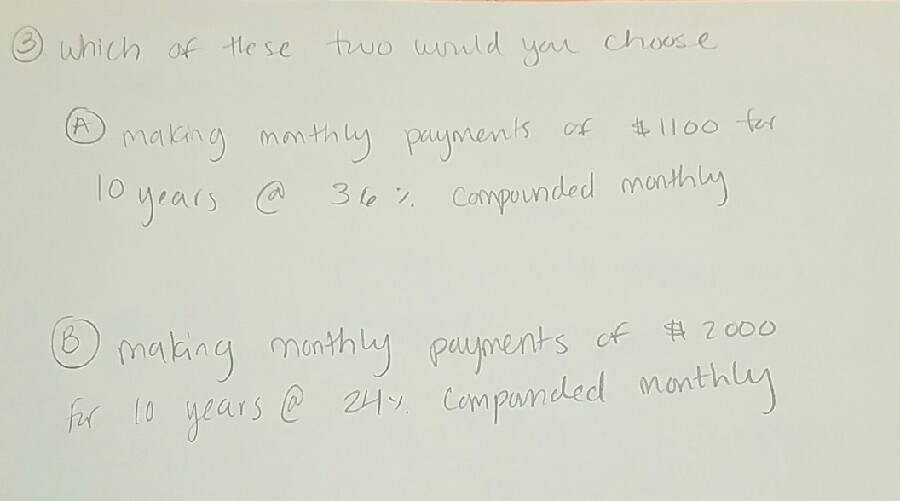 ③ which of these two would you choose
Ⓐ making monthly payments of $1100 for
10 years @ 36%. compounded monthly
Ⓑ making monthly payments of $2000
for 10 years @ 24%. compounded monthly